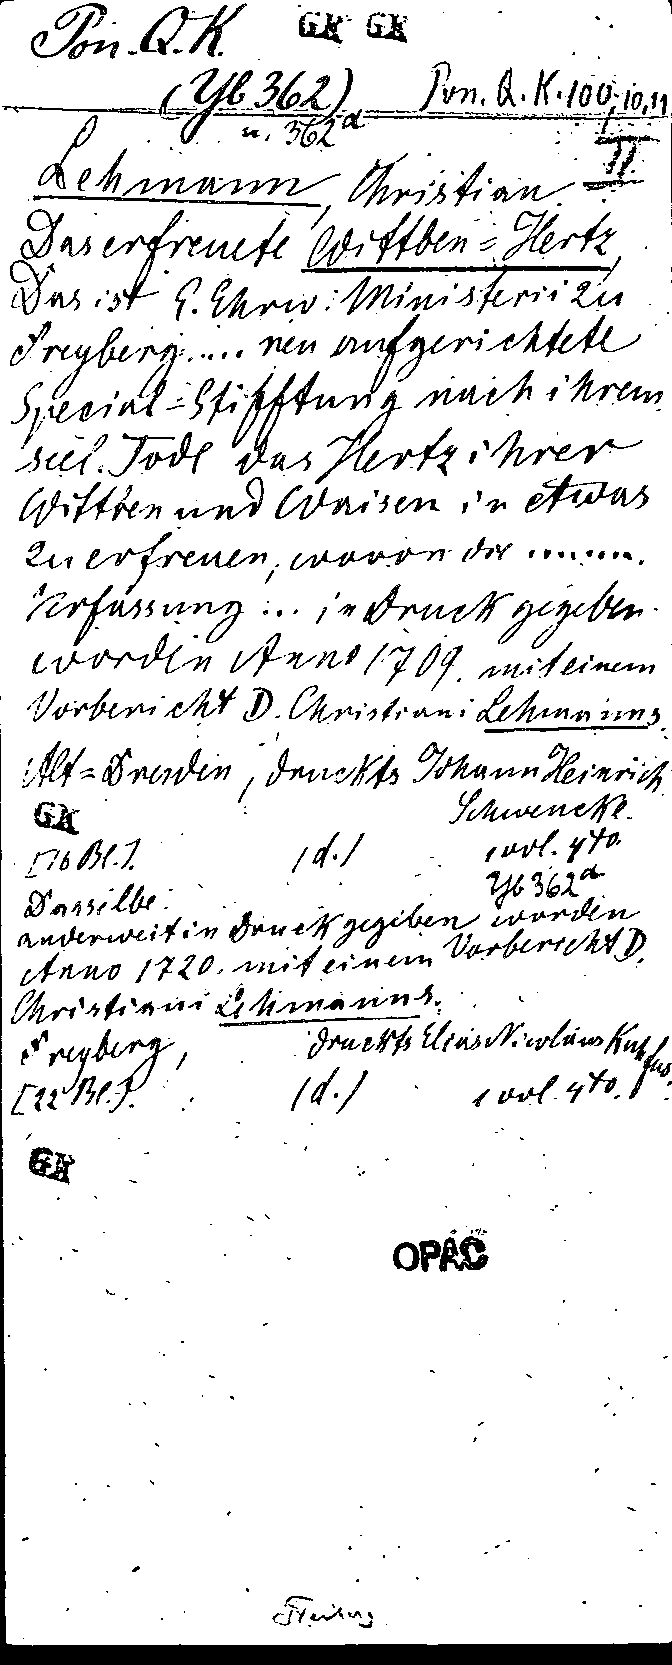 Pon. Q. K. GK GK
(Yb 362) Pon. Q. K. 100, 10, 11
u. 362a II.
Lehmann, Christian.
Das erfreuete Wittben=Hertz,
Das ist E. Ehrw: Ministerii zu
Freyberg .... neu aufgerichtete
Special=Stifftung nach ihrem
seel. Tode das Hertz ihrer
Wittben und Waisen in etwas
zu erfreuen, wovon die .......
Verfassung ... in Druck gegeben
worden Anno 1709. mit einem
Vorbericht D. Christiani Lehmanns.
Alt=Dresden, druckts Johann Heinrich
GK Schwencke.
[16 Bl.]. (d.) 1 vol. 4to.
Dasselbe. Yb 362a
anderweit in Druck gegeben worden
Anno 1720. mit einem Vorbericht D.
Christiani Lehmanns.
Freyberg, druckts Elias Nicolaus Kuhfus.
[22 Bl.]. (d.) 1 vol. 4to.
GK
OPAC
Freiberg